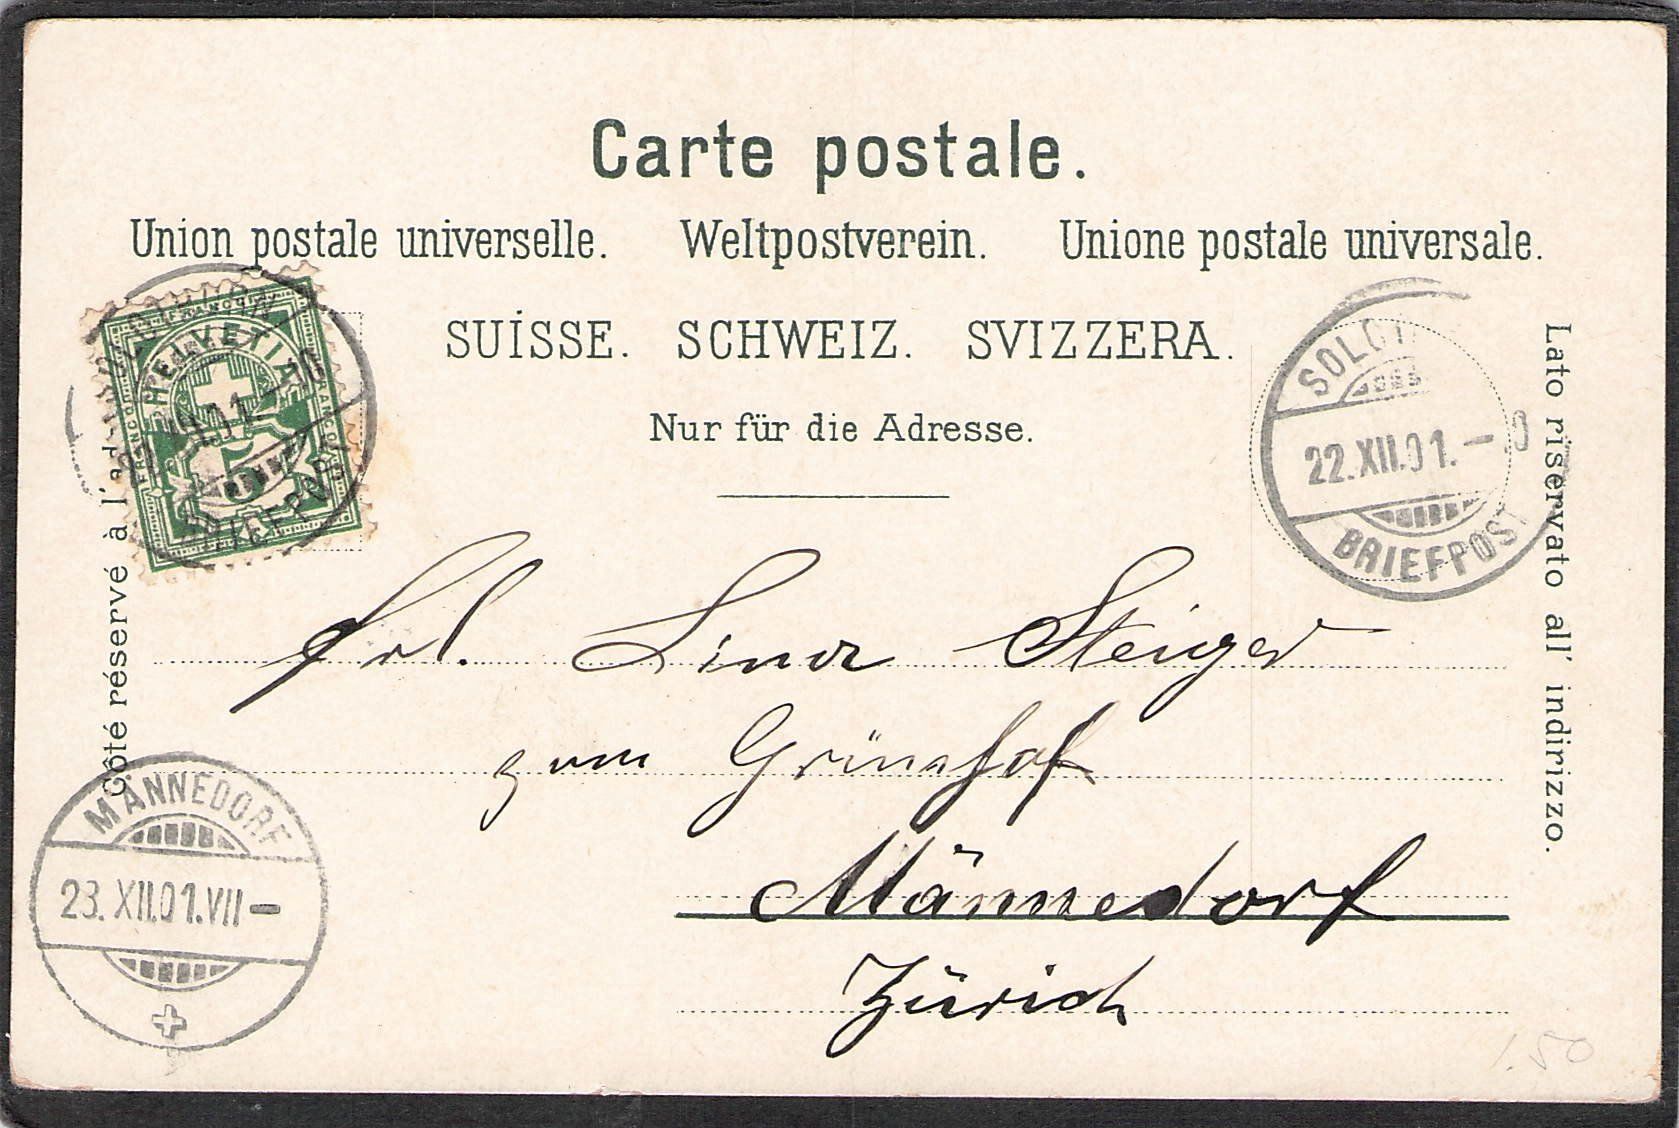 Carte postale.
Union postale universelle. Weltpostverein. Unione postale universale.
SUISSE. SCHWEIZ. SVIZZERA.
Nur für die Adresse.
Côté réservé à l'
Lato riservato all' indirizzo.
HELVETIA
FRANCO
5
BRIEFPOST
22.XII.01.-
BRIEFPOST
Frl. Lina Steiger
zum Grünhof
Männedorf
Zürich
MÄNNEDORF
23.XII.01.VII-
1.50